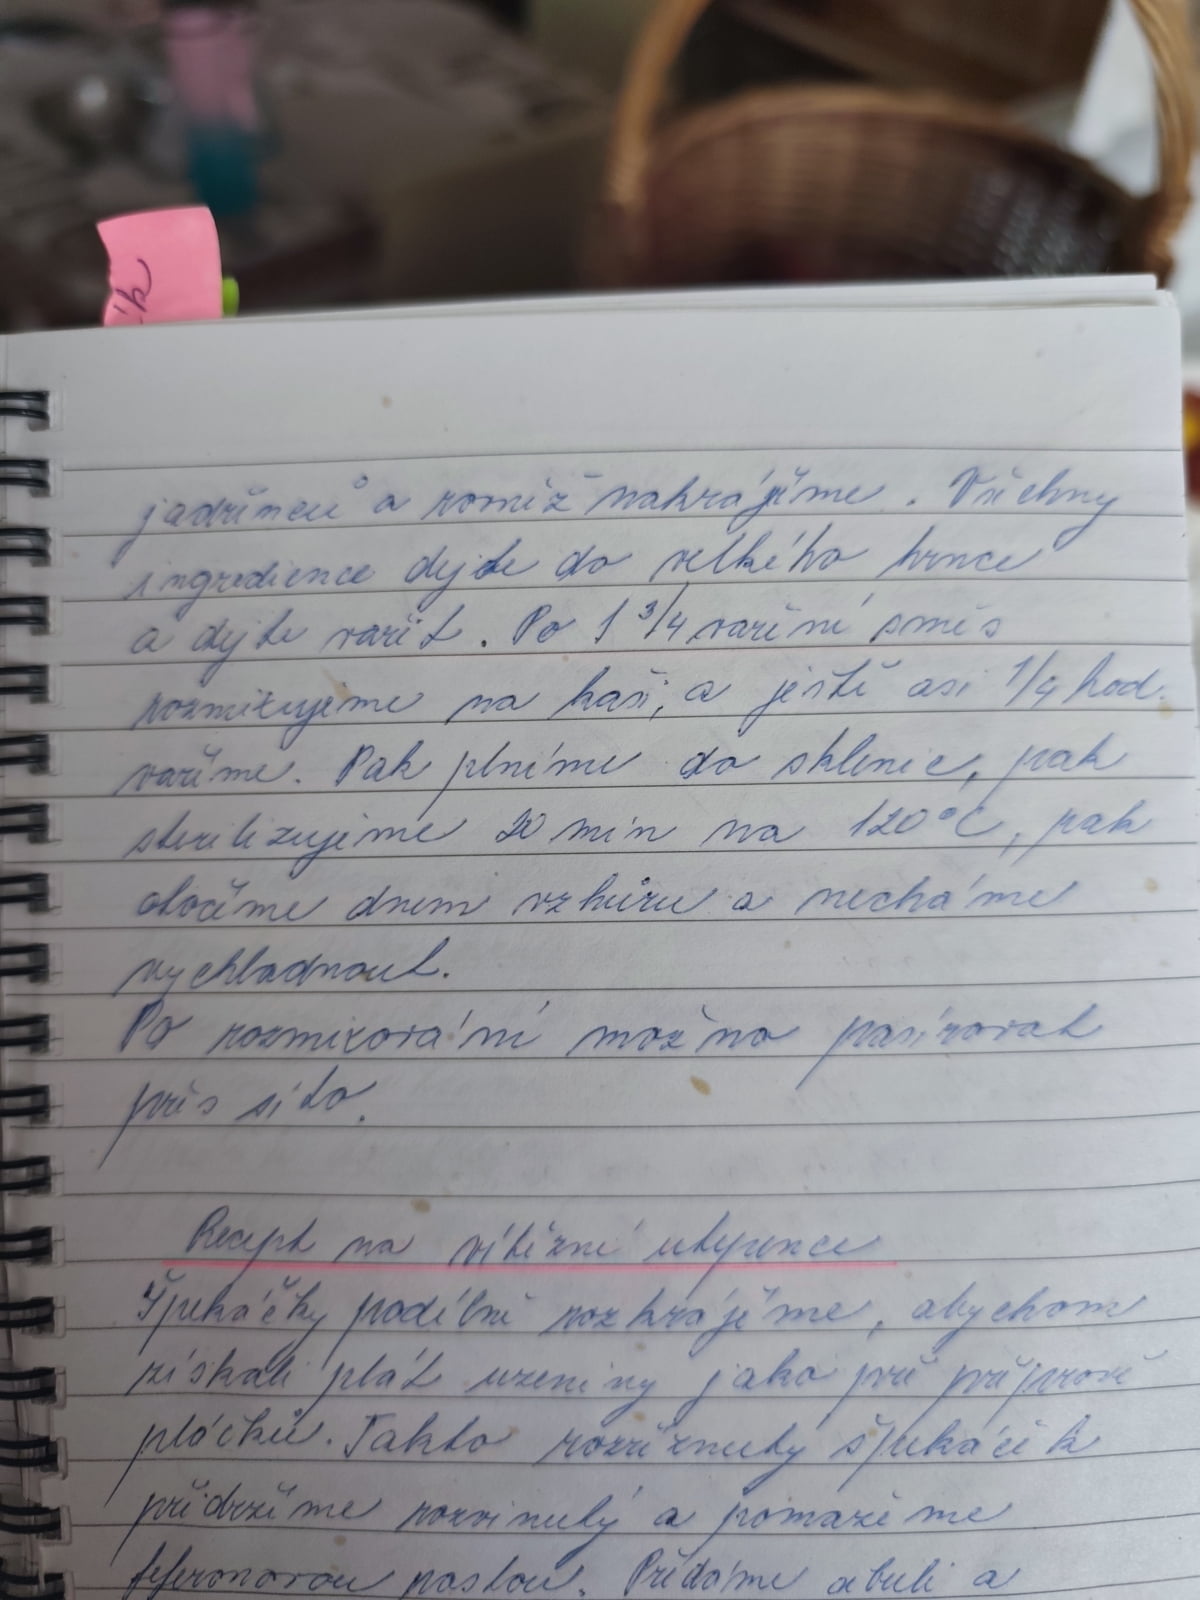 ík
jadřinců a rovněž nakrájíme. Všechny
ingredience dejte do velkého hrnce
a dejte vařit. Po 1 3/4 vaření směs
rozmixujeme na kaši, a ještě asi 1/4 hod.
vaříme. Pak plníme do sklenic, pak
sterilizujeme 20 min na 120°C, pak
otočíme dnem vzhůru a necháme
vychladnout.
Po rozmixování možno pasírovat
přes síto.
Recept na vítězné utopence
Špekáčky podélně rozkrájíme, abychom
získali plát uzeniny jako při přípravě
plátků. Takto rozříznutý špekáček
přidržíme rozvinutý a pomažeme
feferonovou pastou. Přidáme cibuli a